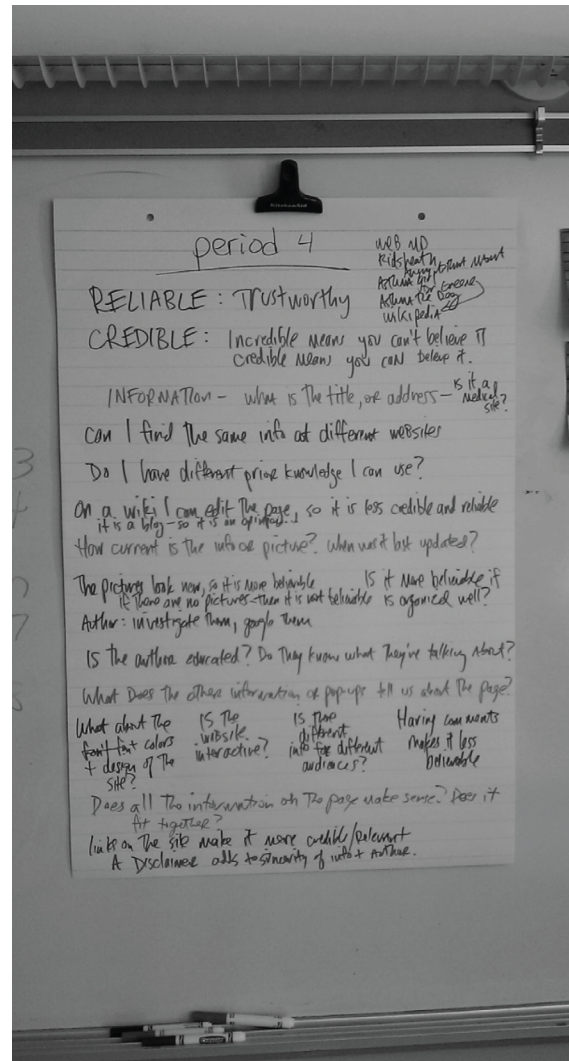 KitchenAid
period 4
WEB MD
Kidshealth
Asthma
Asthma The Dog
wikipedia
RELIABLE : Trustworthy
CREDIBLE : Incredible means you can't believe it
credible means you can believe it.
INFORMATION - what is the title, or address - is it a medical site?
Can I find the same info at different websites
Do I have different prior knowledge I can use?
On a wiki I can edit the page, so it is less credible and reliable
it is a blog - so it is an opinion
How current is the info or picture? When was it last updated?
The pictures look new, so it is more believable
if there are no pictures - then it is not believable
Is it more believable if
is organized well?
Author : investigate them, google them
Is the author educated? Do they know what they're talking about?
What Does the other information or pop-ups tell us about the page?
What about the
font colors
+ design of the
site?
Is the
website
interactive?
Is there
different
info for different
audiences?
Having comments
makes it less
believable
Does all the information on the page make sense? Does it
fit together?
links on the site make it more credible/relevant
A Disclaimer adds to sincerity of info + Author.